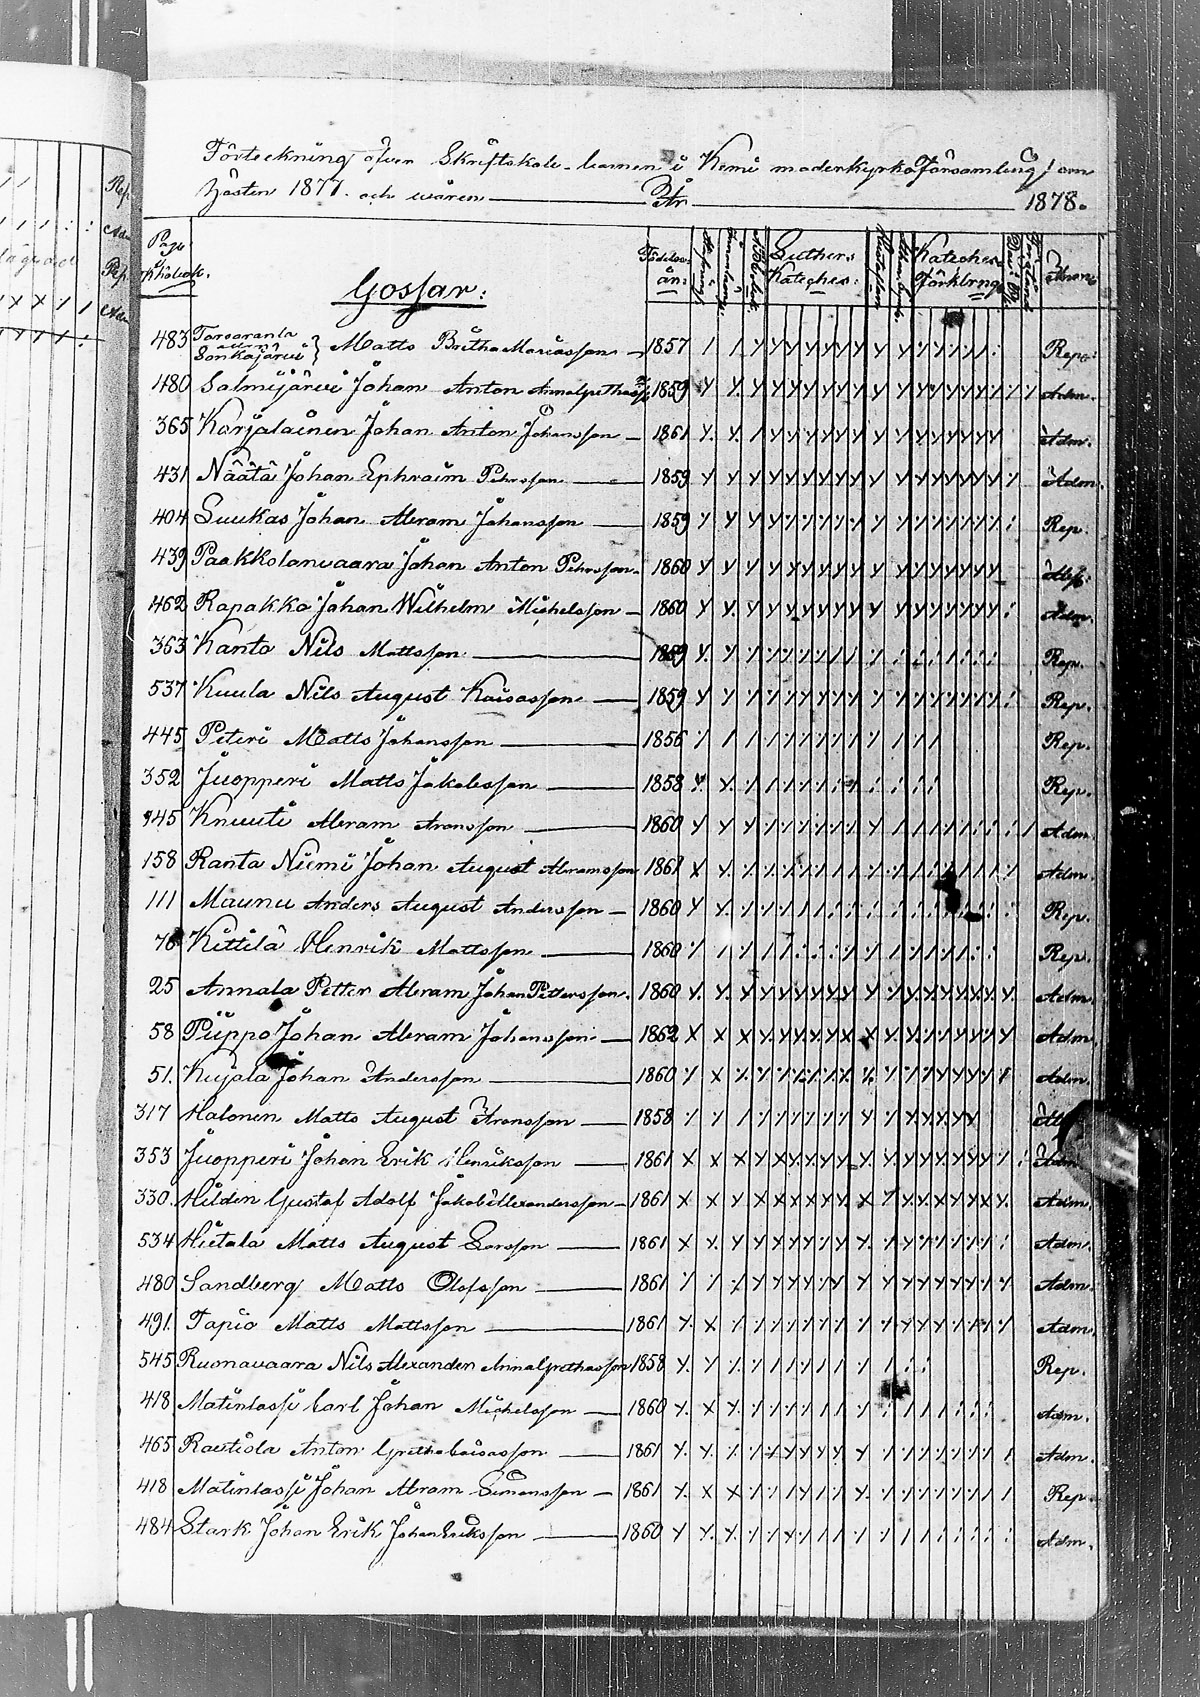 Förteckning öfver Skriftskole-barnen i Kemi moderkyrko församling, om
hösten 1877 och wåren 1878.
Födelse
år.
Luthers
Kateches:
Kateches
Förklrng
Gossar:
483 Matts Britha Mariasson 1857 Rep.
480 Salmijärvi Johan Anton Annagrethasson 1859 Adm.
365 Karjalainen Johan Anton Johansson 1861 Adm.
431 Näätä Johan Ephraim Pehrsson 1859 Adm.
404 Luukas Johan Abram Johansson 1859 Rep.
439 Paakkolanvaara Johan Anton Pehrsson 1860
462 Rapakko Johan Wilhelm Michelsson 1860 Adm.
363 Kanto Nils Mattsson 1859 Rep.
537 Kuula Nils August Kaisasson 1859 Rep.
445 Peteri Matts Johansson 1856 Rep.
352 Juopperi Matts Jakobsson 1858 Rep.
145 Knuuti Abram Aronsson 1860 Adm.
158 Ranta Niemi Johan August Abramsson 1861 Adm.
111 Maunu Anders August Andersson 1860 Rep.
76 Kittilä Henrik Mattsson 1860 Rep.
25 Annala Petter Abram Johan Pettersson 1860 Adm.
58 Piippo Johan Abram Johansson 1862 Adm.
51. Kujala Johan Andersson 1860 Adm.
317 Halonen Matts August Aronsson 1858
353 Juopperi Johan Erik Henriksson 1861 Adm.
330. Hilden Gustaf Adolf Jakob Alexandersson 1861 Adm.
534 Hietala Matts August Larsson 1861 Adm.
480 Sandberg Matts Olofsson 1861 Adm.
491. Tapio Matts Mattsson 1861 Adm.
545 Ruonavaara Nils Alexander Annagrethasson 1858 Rep.
418 Matinlassi Carl Johan Michelsson 1860 Adm.
465 Rautiola Anton Gretha Caisasson 1861 Adm.
418 Matinlassi Johan Abram Simonsson 1861 Rep.
484 Stark Johan Erik Johan Eriksson 1860 Adm.